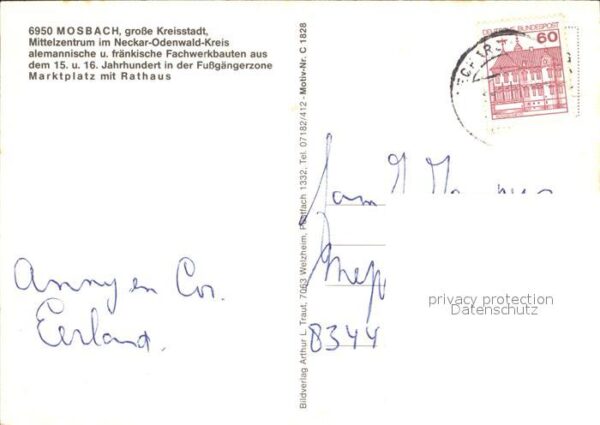 6950 MOSBACH, große Kreisstadt,
Mittelzentrum im Neckar-Odenwald-Kreis
alemannische u. fränkische Fachwerkbauten aus
dem 15. u. 16. Jahrhundert in der Fußgängerzone
Marktplatz mit Rathaus
Anny en Cor.
Eerland.
Bildverlag Arthur L. Traut, 7063 Welzheim, Postfach 1332, Tel. 07182/412 - Motiv-Nr. C 1828
DEUTSCHE BUNDESPOST
60
Fam
8344
privacy protection
Datenschutz